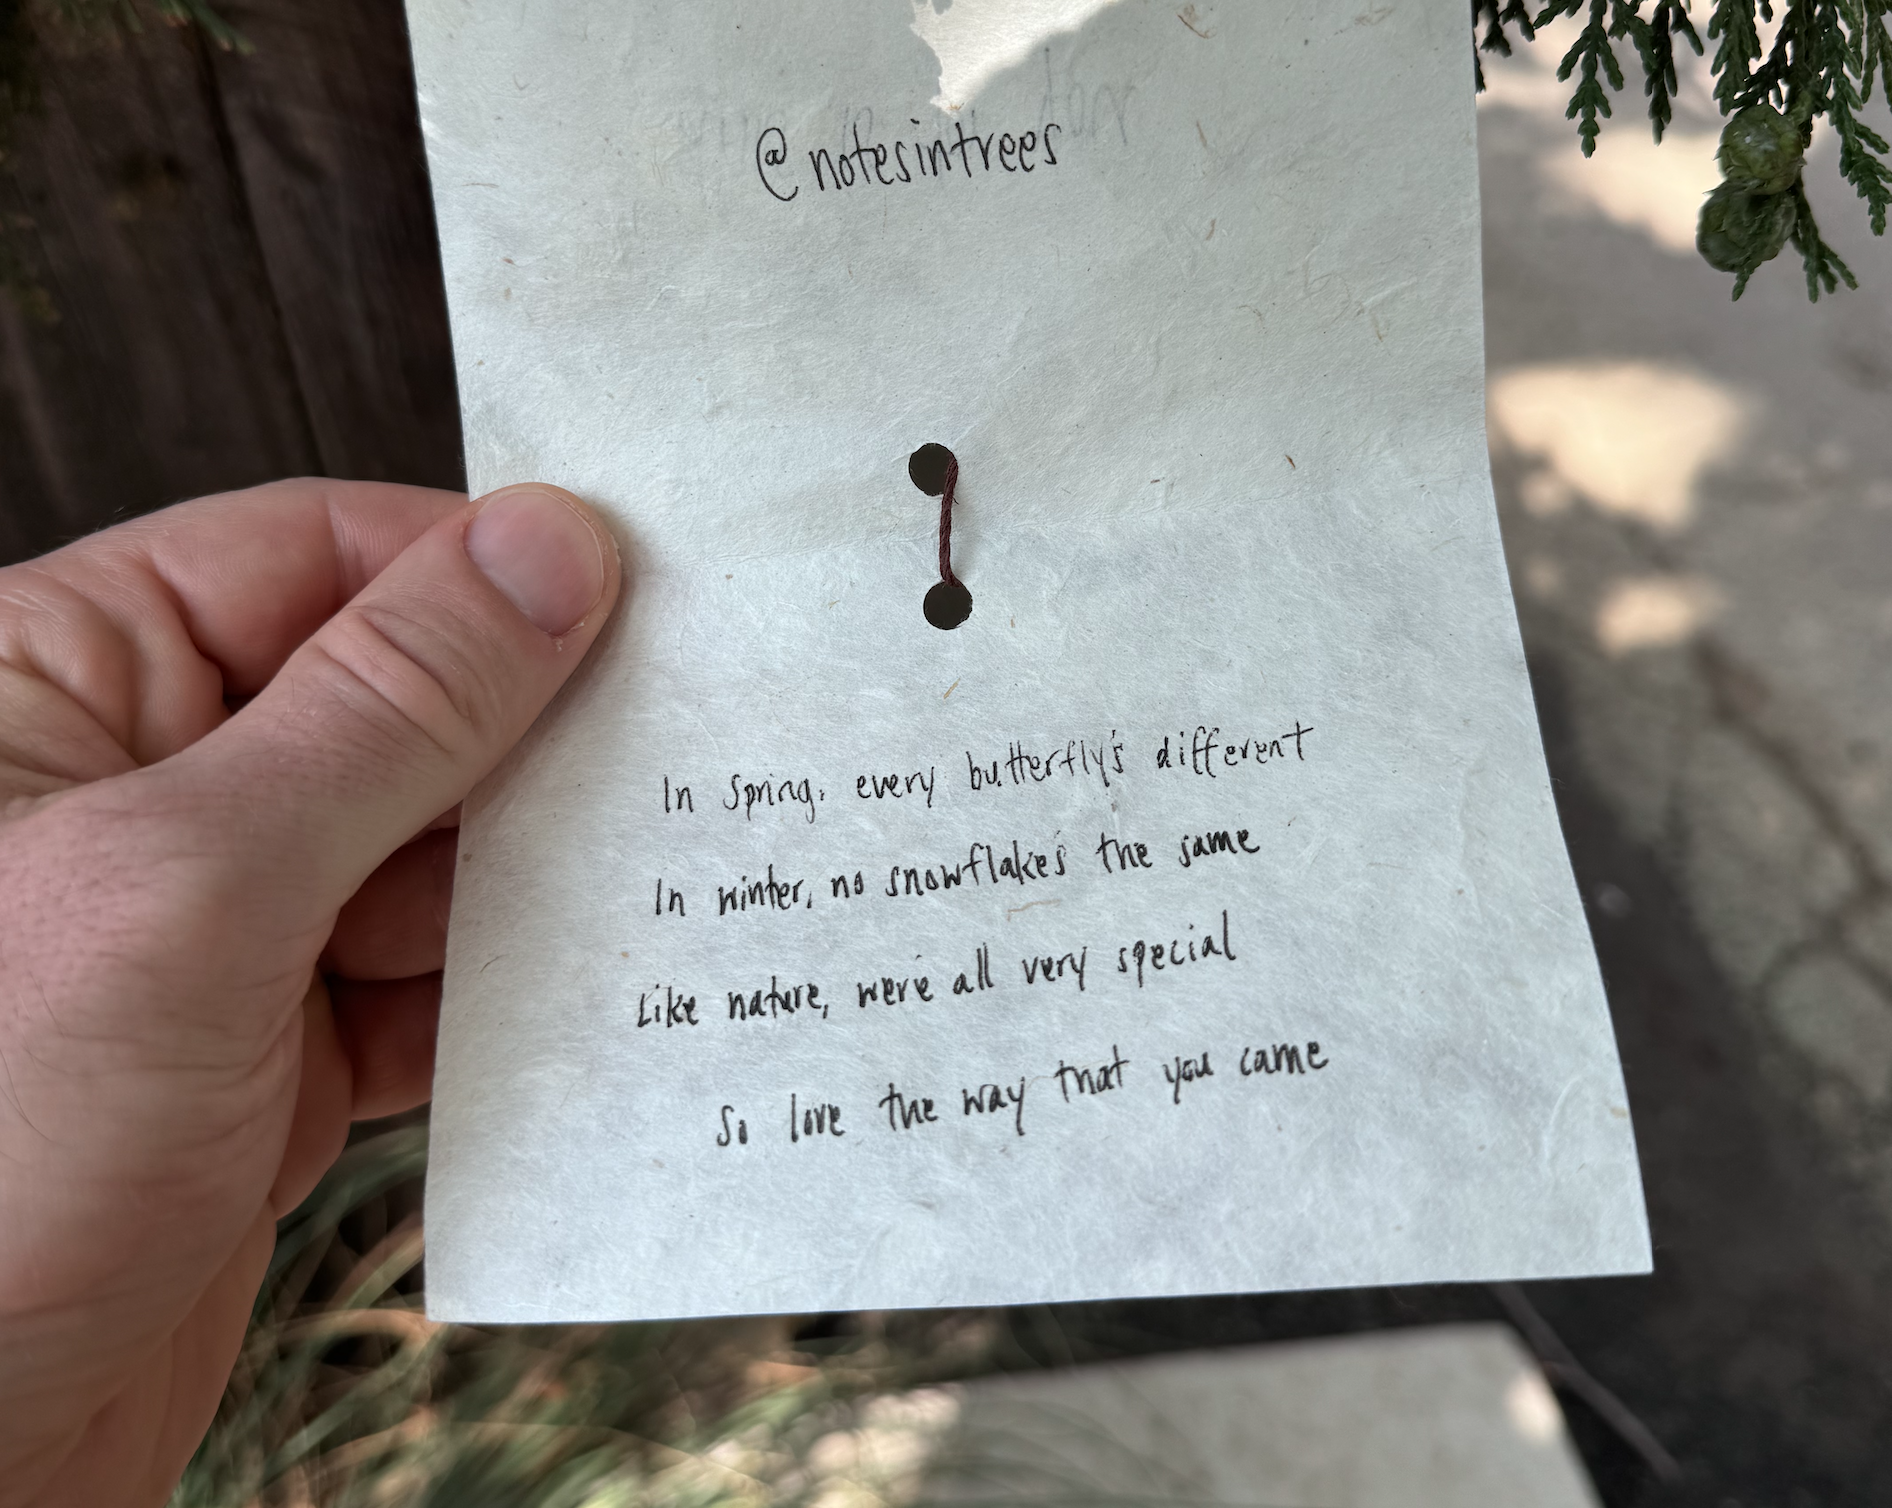 @notesintrees
In Spring, every butterfly's different
In winter, no snowflake's the same
Like nature, we're all very special
So love the way that you came